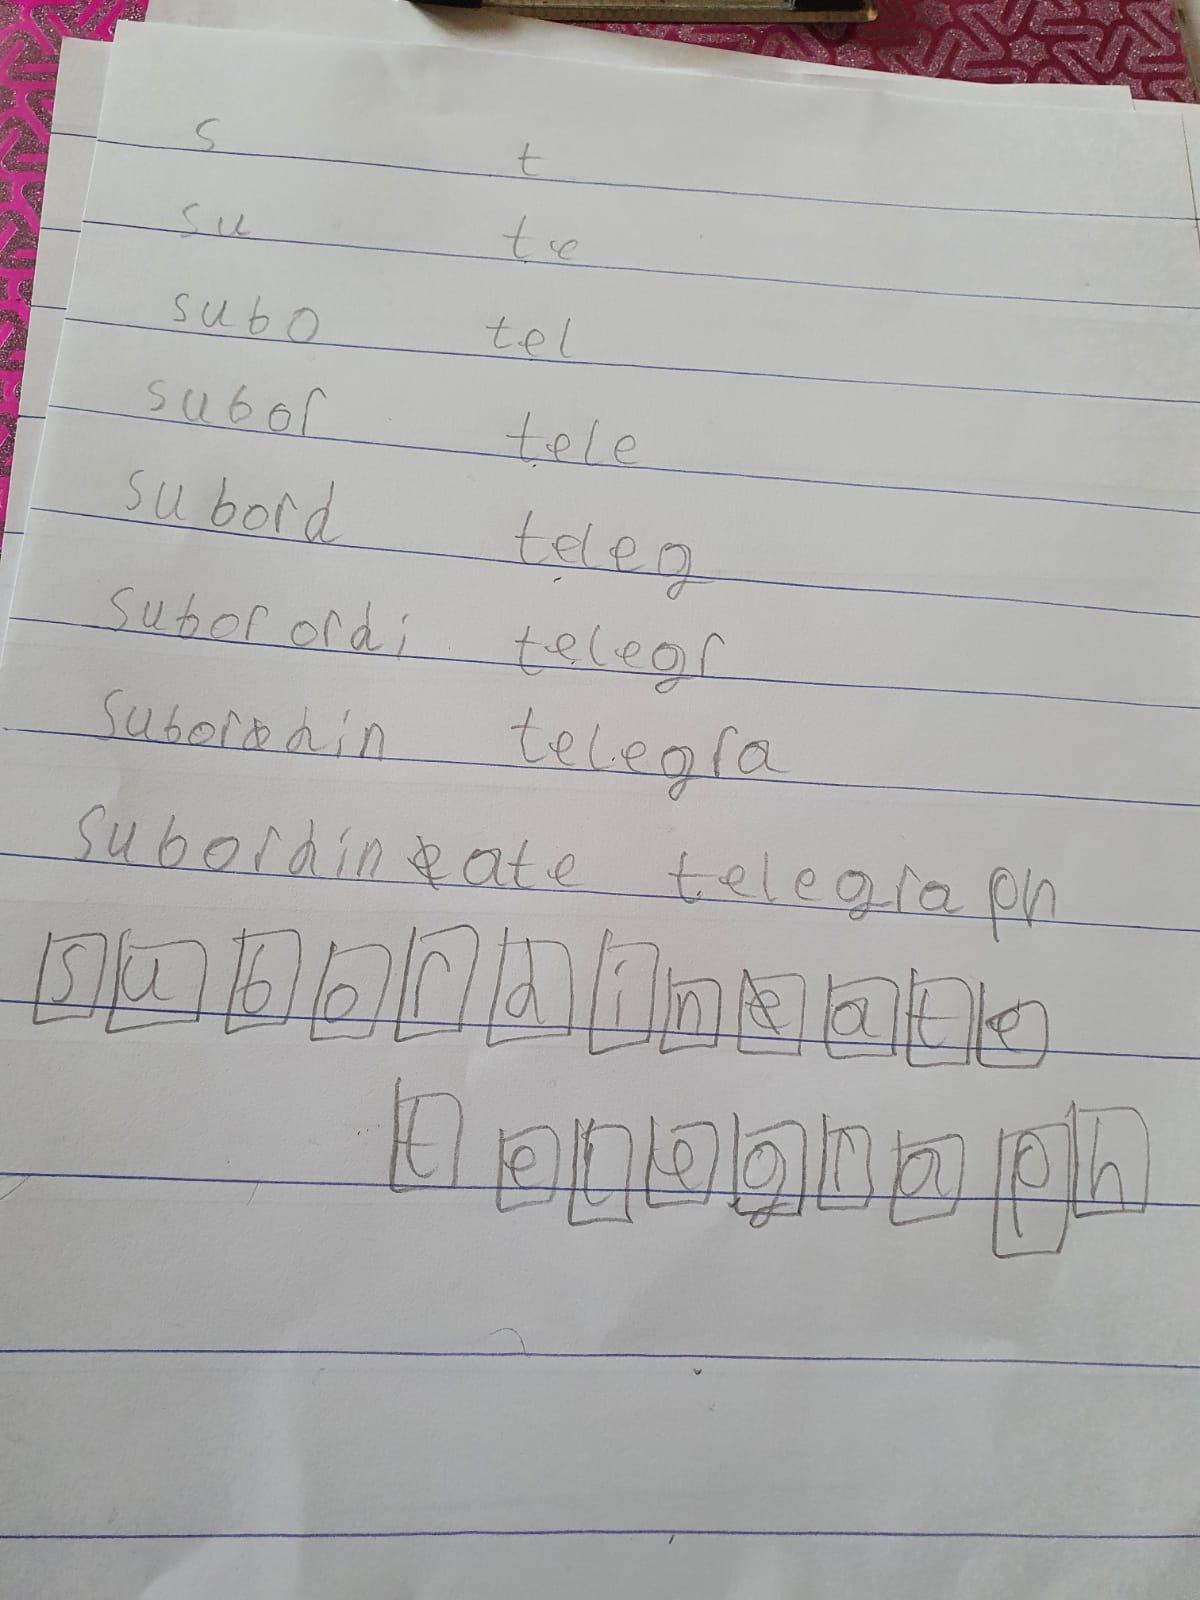 s t
su te
subo tel
subor tele
subord teleg
suborordi telegr
subordin telegra
subordinate telegraph
subordinate
telegraph